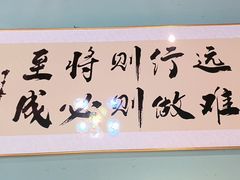 远行则将至
难做则必成